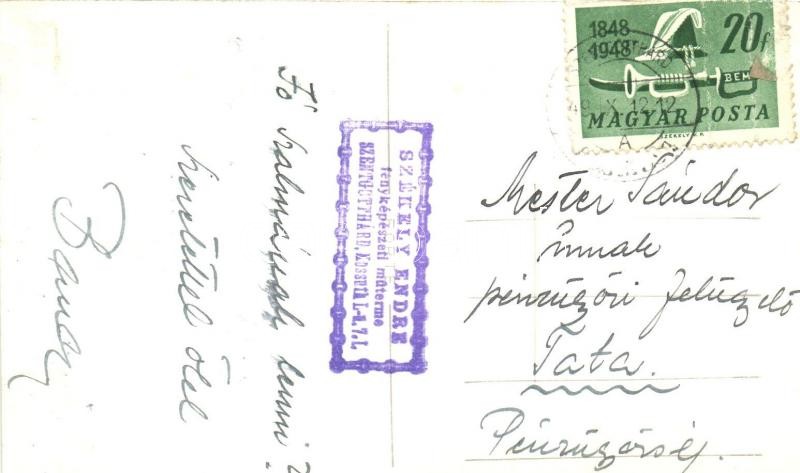 Jó szalmának lenni
Szeretettel ölel
Bandi
SZÉKELY ENDRE
fényképészeti műterme
SZENTGOTTHÁRD, Kossuth L-u. 7. I.
1848
1948
20f
BEM
MAGYAR POSTA
SZÉKELY K.
49. X. 12. 12
A
Mester Sándor
úrnak
pénzügyőri felügyelő
Tata.
Pénzügyőrség.